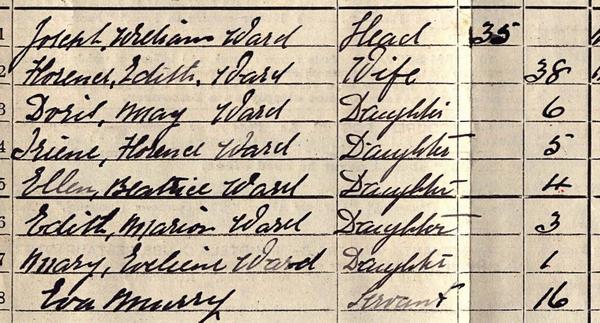 1 Joseph, William Ward Head 35
2 Florence, Edith, Ward Wife 38
3 Doris, May Ward Daughter 6
4 Iriene, Florence Ward Daughter 5
5 Ellen, Beatrice Ward Daughter 4
6 Edith, Marion Ward Daughter 3
7 Mary, Eveline Ward Daughter 1
8 Eva Murry Servant 16